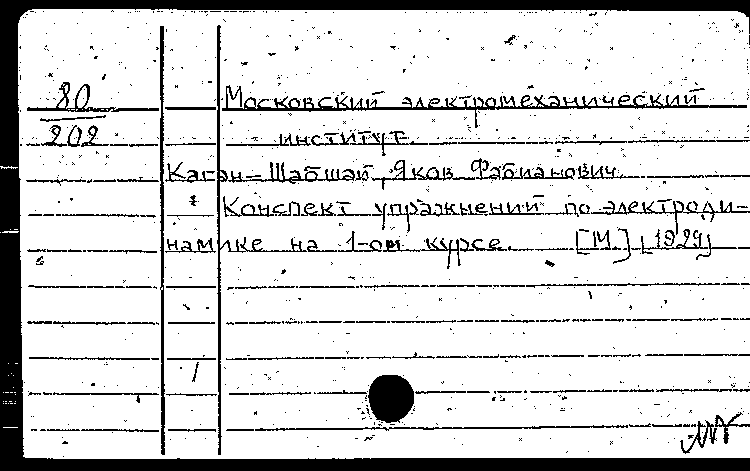 80
202
Московский электромеханический
институт.
Каган-Шабшай, Яков Фабианович
* Конспект упражнений по электроди-
намике на 1-ом курсе. [М.] [1929]
/